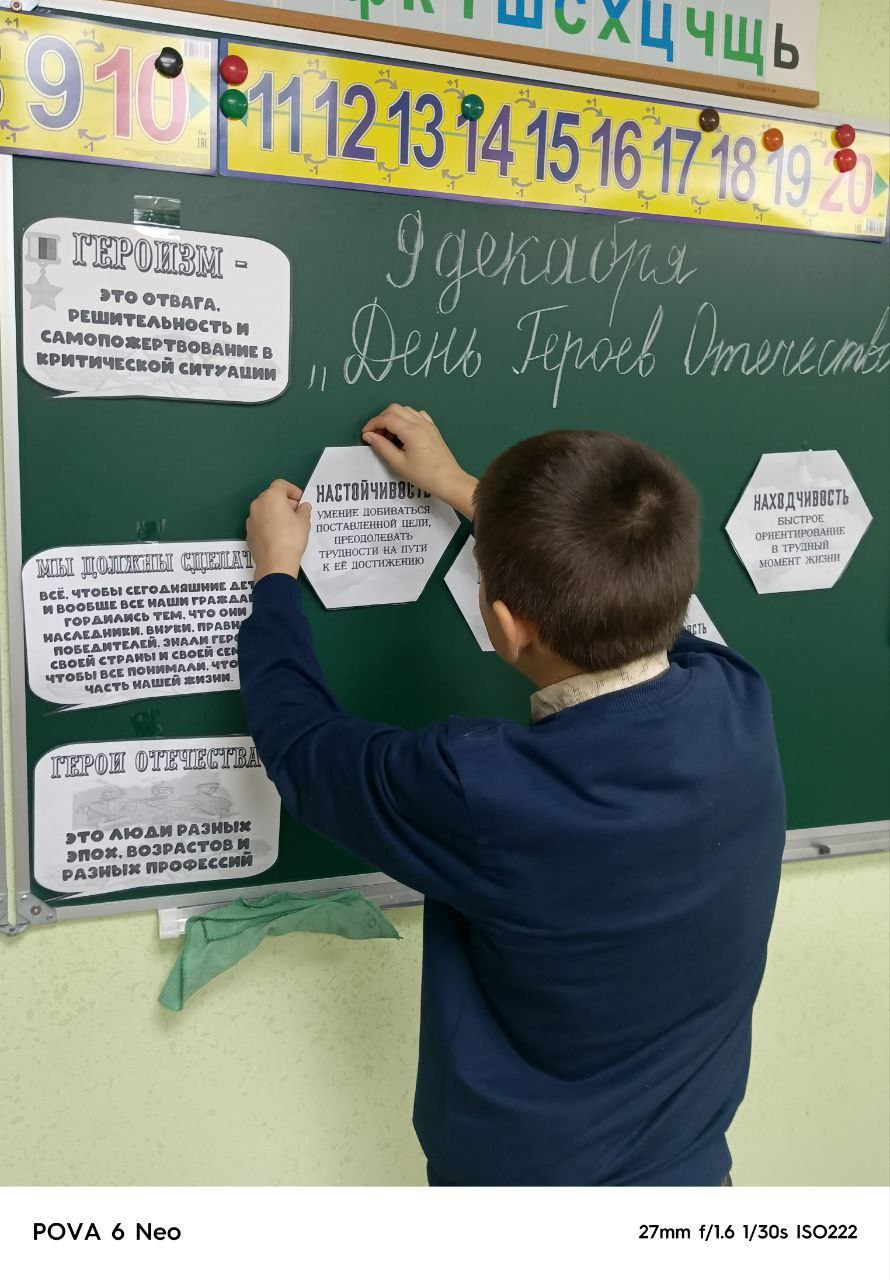 ш с х ц ч щ ь
9 10
11 12 13 14 15 16 17 18 19 20
9 декабря
„День Героев Отечества
ГЕРОИЗМ -
ЭТО ОТВАГА,
РЕШИТЕЛЬНОСТЬ И
САМОПОЖЕРТВОВАНИЕ В
КРИТИЧЕСКОЙ СИТУАЦИИ
НАСТОЙЧИВОСТЬ
УМЕНИЕ ДОБИВАТЬСЯ
ПОСТАВЛЕННОЙ ЦЕЛИ,
ПРЕОДОЛЕВАТЬ
ТРУДНОСТИ НА ПУТИ
К ЕЁ ДОСТИЖЕНИЮ
НАХОДЧИВОСТЬ
БЫСТРОЕ
ОРИЕНТИРОВАНИЕ
В ТРУДНЫЙ
МОМЕНТ ЖИЗНИ
МЫ ДОЛЖНЫ СДЕЛАТ
ВСЁ, ЧТОБЫ СЕГОДНЯШНИЕ ДЕТ
И ВООБЩЕ ВСЕ НАШИ ГРАЖДА
ГОРДИЛИСЬ ТЕМ, ЧТО ОНИ
НАСЛЕДНИКИ, ВНУКИ, ПРАВН
ПОБЕДИТЕЛЕЙ. ЗНАЛИ ГЕРО
СВОЕЙ СТРАНЫ И СВОЕЙ СЕМ
ЧТОБЫ ВСЕ ПОНИМАЛИ, ЧТО
ЧАСТЬ НАШЕЙ ЖИЗНИ.
ГЕРОИ ОТЕЧЕСТВА
ЭТО ЛЮДИ РАЗНЫХ
ЭПОХ, ВОЗРАСТОВ И
РАЗНЫХ ПРОФЕССИЙ
POVA 6 Neo
27mm f/1.6 1/30s ISO222